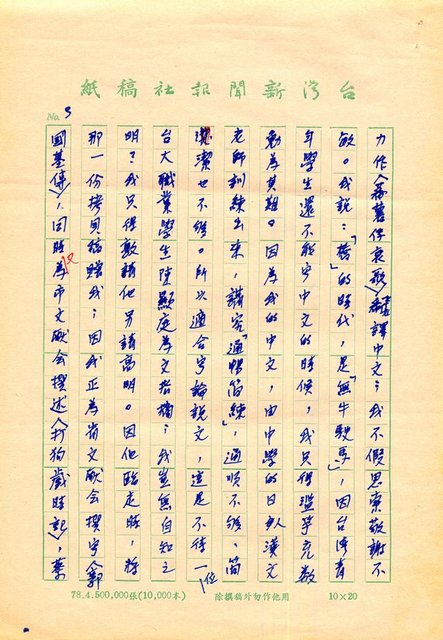 台灣新聞報社稿紙
No. 3
力作〈蕃薯仔哀歌〉翻譯中文;我不假思索敬謝不
敏。我説:「舊」的時代,是「無牛駛馬」,因台灣青
年學生還不能寫中文的時候,我只得濫竽充數
勉為其難。因為我的中文,由中學的日人漢文
老師訓練出來,講究「通暢簡練」,通順不夠。簡
潔也不夠。所以適合寫論説文,這是不待一位
台大職業學生陸顯庭為文指摘;我豈無自知之
明?我只得敬請他另請高明。因他臨走時,將
那一份拷貝稿贈我;因我正為省文獻會撰寫〈郭
國基傳〉,因時為市文獻會撰述〈打狗歲時記〉,棄
78.4.500,000張(10,000本) 除撰稿外勿作他用 10×20